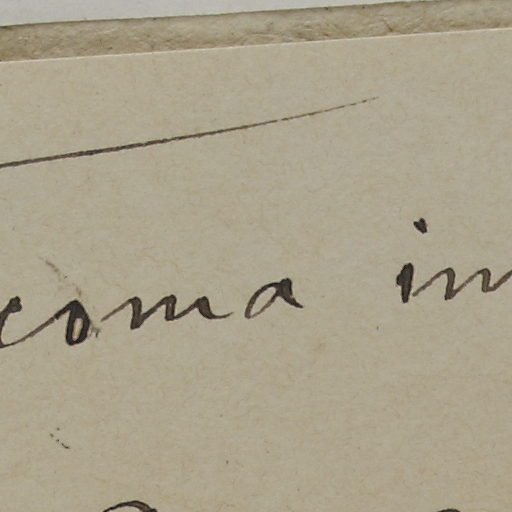 coma in